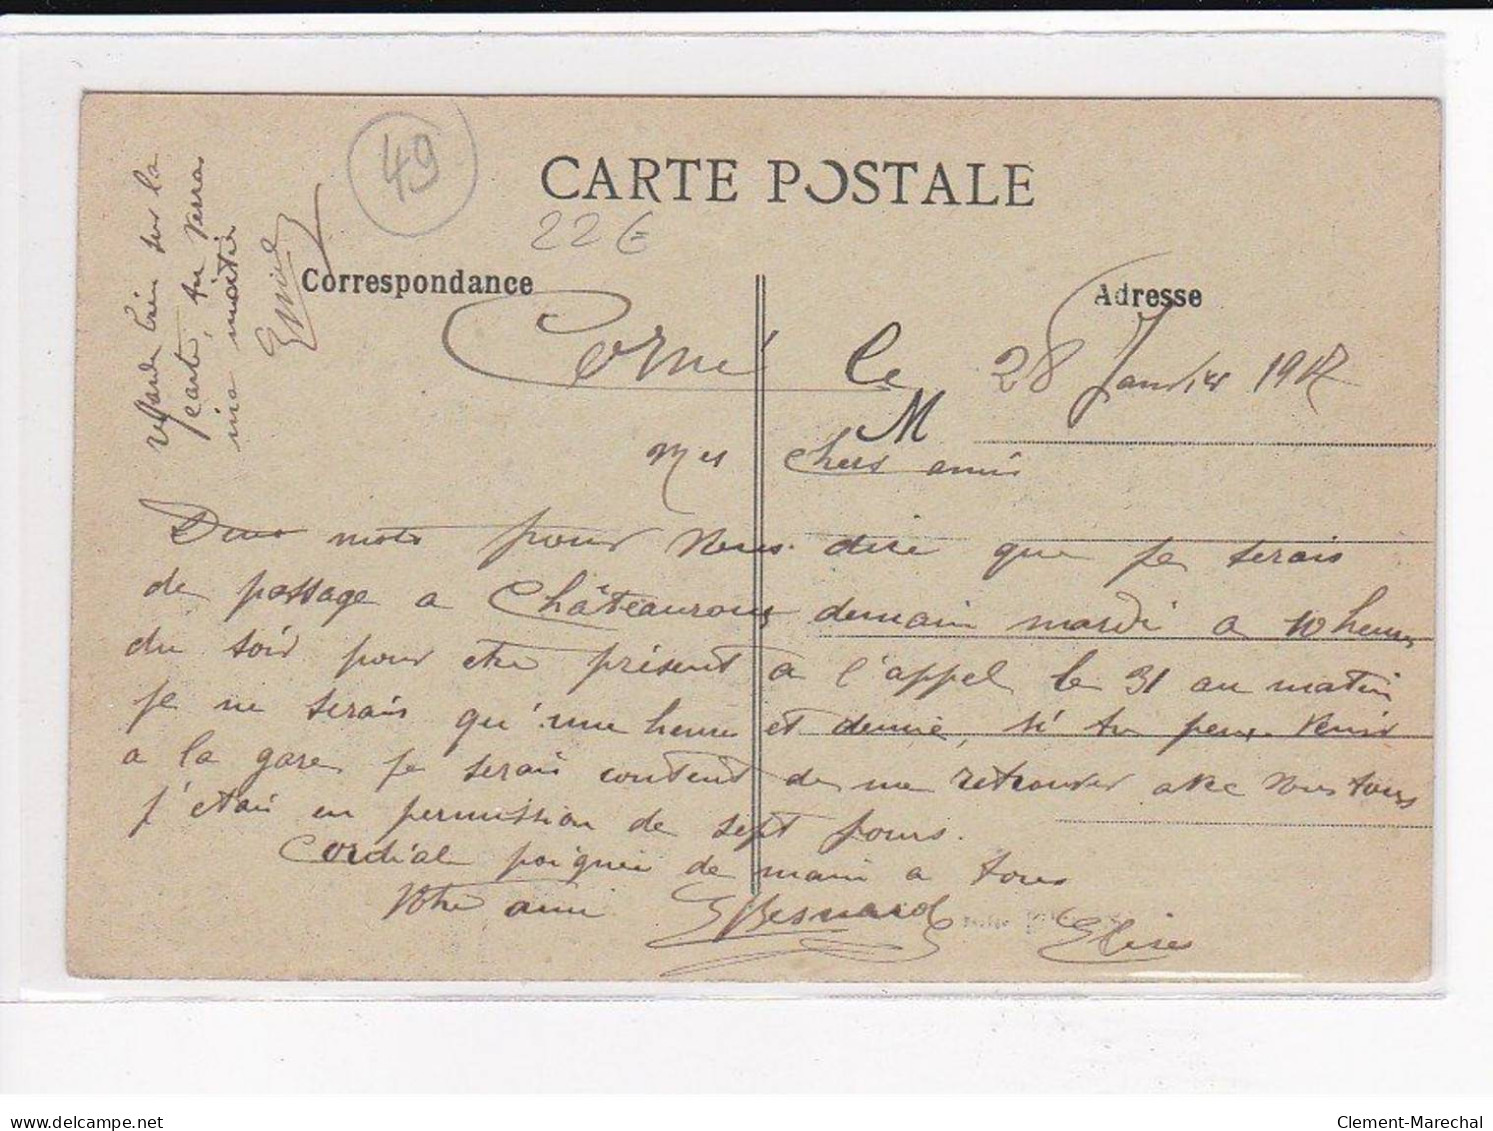 49
CARTE POSTALE
22 €
Correspondance
Adresse
regarde bien sur la
carte, tu verra
ma moitié
Corné le 28 Janvier 19
M
mes chers amis
Deux mots pour vous dire que je serais
de passage a Châteauroux demain mardi a 10 heures
du soir pour etre présent a l'appel le 31 au matin
je ne serais qu'une heure et demie, si tu peux venir
a la gare je serais content de me retrouver avec vous tous
j'etais en permission de sept jours.
Cordial poignée de main a tous
Votre ami E Besnard Elise
delcampe.net
Clement-Marechal